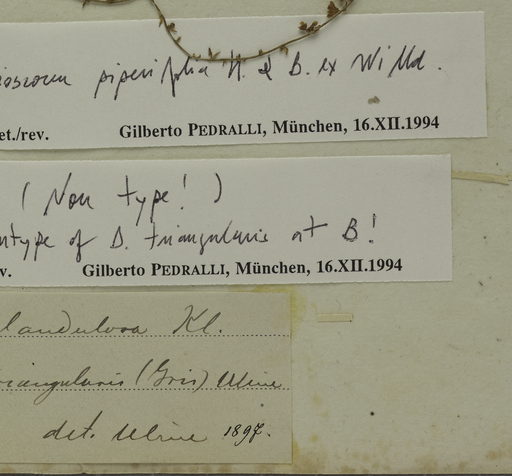 ioscorea piperifolia H. & B. ex Willd.
et./rev. Gilberto PEDRALLI, München, 16.XII.1994
( Non type! )
ntype of D. triangularis at B!
v. Gilberto PEDRALLI, München, 16.XII.1994
landulosa Kl.
riangularis (Gris) Uline
det. Uline 1897.